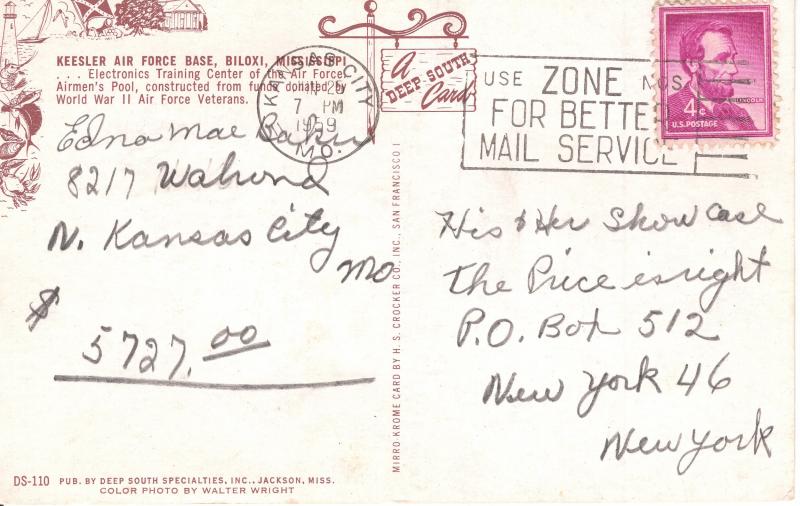 KEESLER AIR FORCE BASE, BILOXI, MISSISSIPPI
. . . Electronics Training Center of the Air Force.
Airmen's Pool, constructed from funds donated by
World War II Air Force Veterans.
A
DEEP SOUTH
Card
KANSAS CITY
25
7 PM
1959
MO.
USE ZONE NOS.
FOR BETTER
MAIL SERVICE
4¢
LINCOLN
U.S. POSTAGE
Edna Mae
8217 Walrond
N. Kansas City
Mo
$
5727.00
MIRRO-KROME CARD BY H. S. CROCKER CO., INC., SAN FRANCISCO 1
His & Her Showcase
The Price is right
P.O. Box 512
New York 46
New York
DS-110 PUB. BY DEEP SOUTH SPECIALTIES, INC., JACKSON, MISS.
COLOR PHOTO BY WALTER WRIGHT